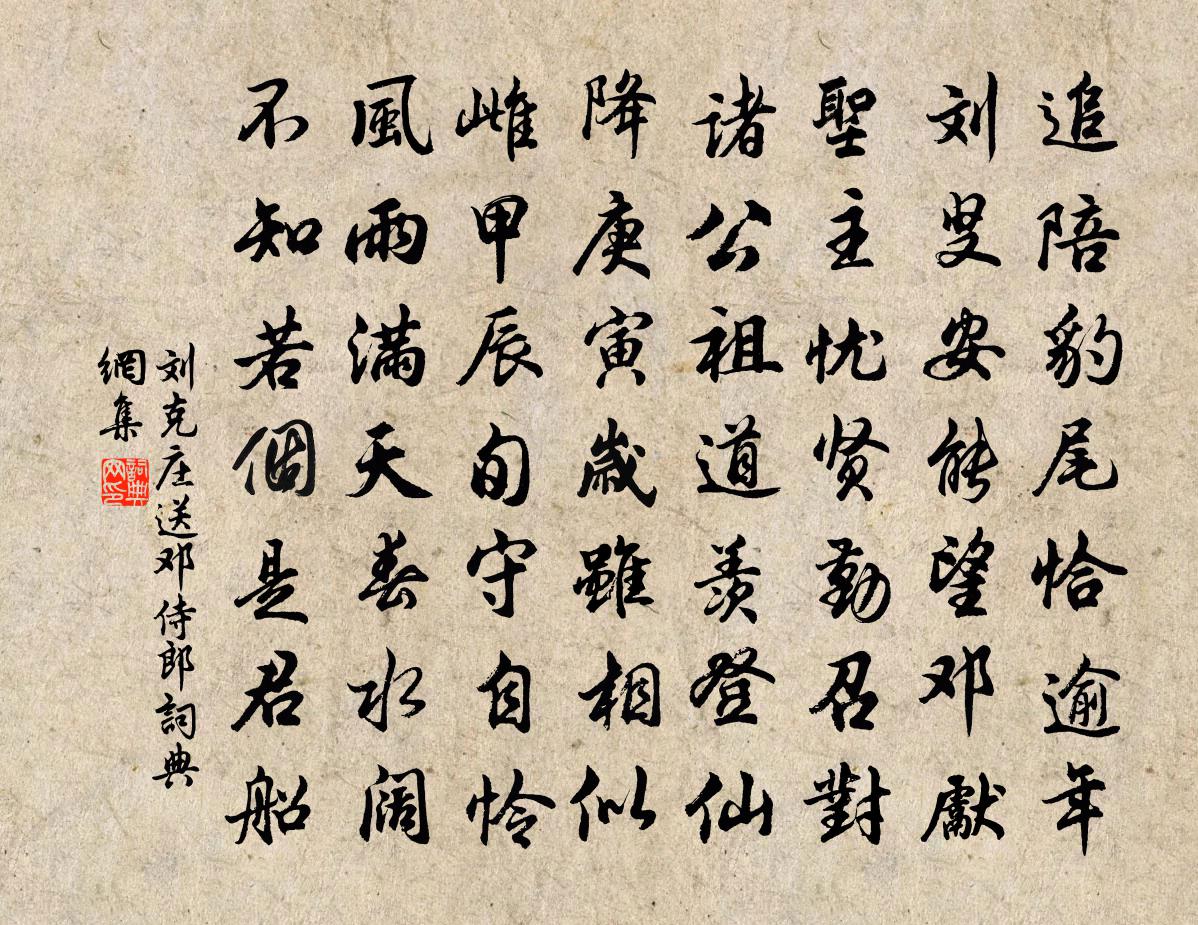 追陪豹尾恰逾年
刘叟安能望邓獻
聖主忧贤勤召對
诸公祖道羨登仙
降庚寅歲雖相似
雌甲辰旬守自怜
風雨满天春水阔
不知若個是君船
刘克庄送邓侍郎詞典
網集
詞典
网印